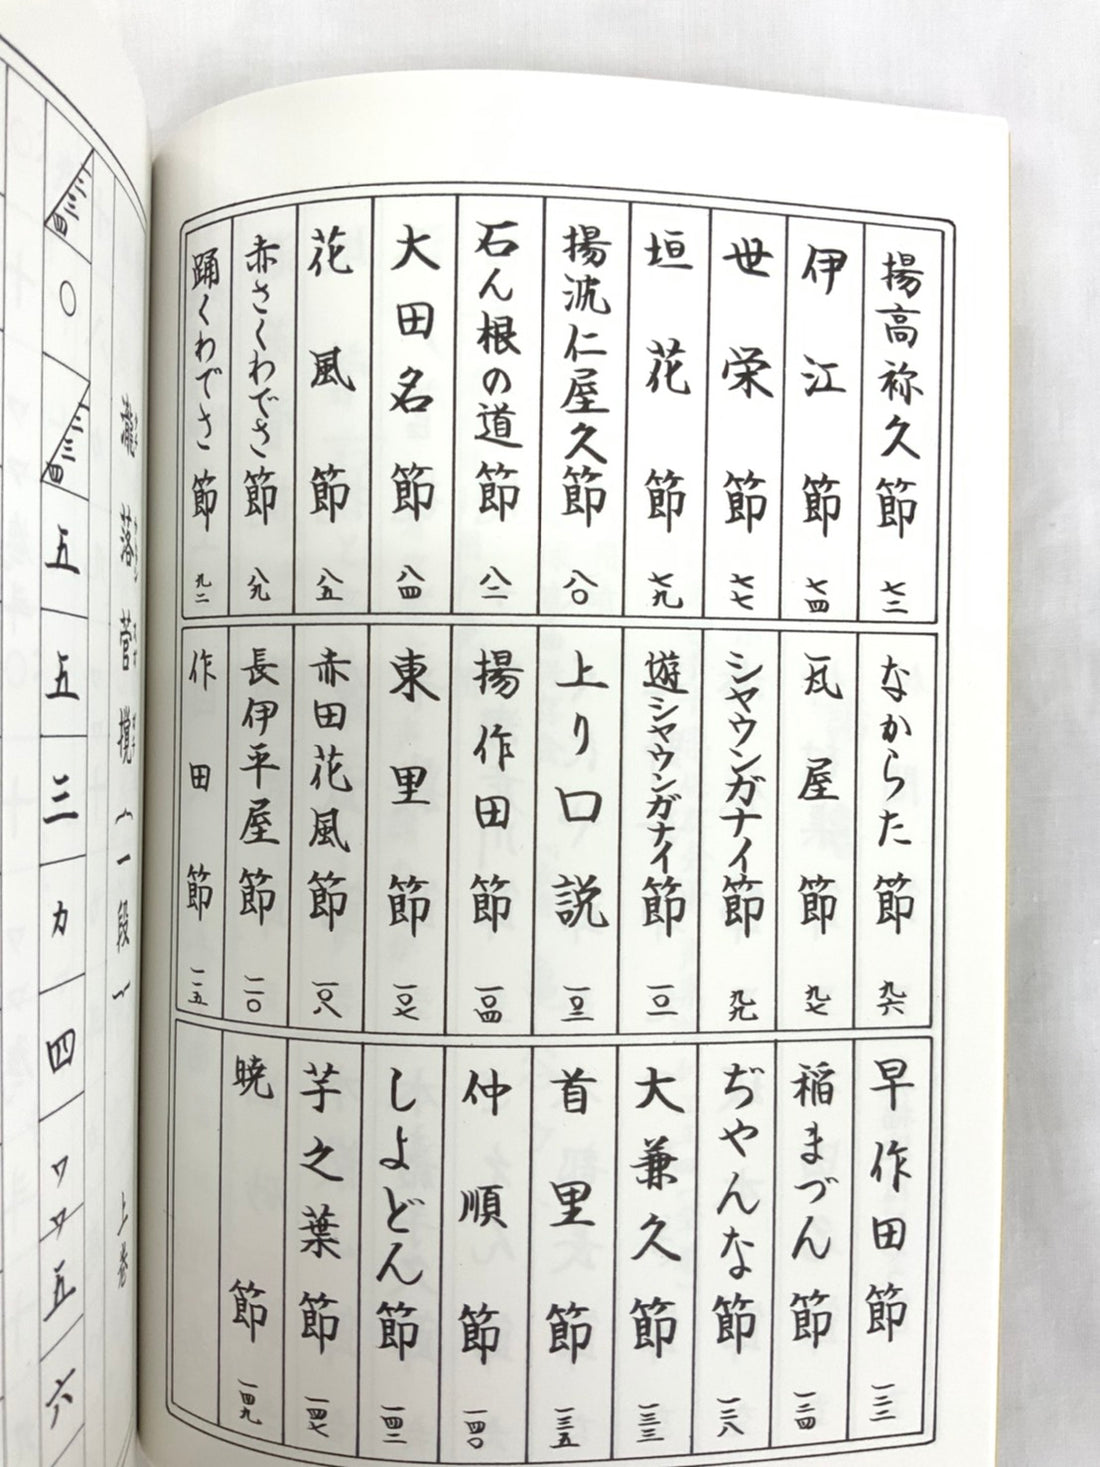 揚高祢久節 七二
伊江節 七四
世栄節 七七
垣花節 七九
揚沈仁屋久節 八〇
石ん根の道節 八二
大田名節 八四
花風節 八五
赤さくわでさ節 八九
踊くわでさ節 九二
なからた節 九六
瓦屋節 九七
シヤウンガナイ節 九九
遊シヤウンガナイ節 一〇一
上り口説 一〇三
揚作田節 一〇四
東里節 一〇七
赤田花風節 一〇八
長伊平屋節 一一〇
作田節 一一五
早作田節 一二二
稲まづん節 一二四
ぢやんな節 一二八
大兼久節 一三三
首里節 一三五
仲順節 一四〇
しよどん節 一四二
芋之葉節 一四七
暁節 一四九
瀧落菅撹（一段） 上巻
〇 五 五 三 カ 四 ワ ヲ 五 六